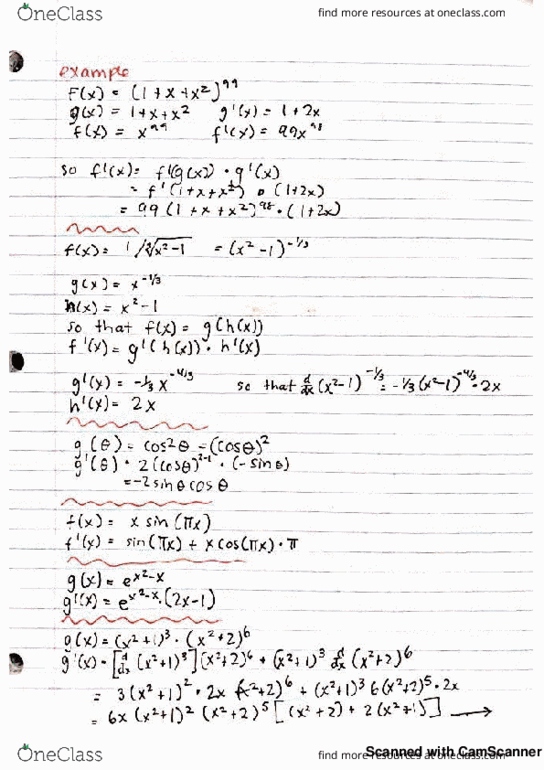 OneClass
find more resources at oneclass.com
example
F(x) = (1+x+x²)⁹⁹
g(x) = 1+x+x² g'(x) = 1+2x
f(x) = x⁹⁹ f'(x) = 99x⁹⁸
so f'(x) = f'(g(x)) · g'(x)
= f'(1+x+x²) · (1+2x)
= 99(1+x+x²)⁹⁸ · (1+2x)
f(x) = 1/∛x²-1 = (x²-1)^-1/3
g(x) = x^-1/3
h(x) = x²-1
so that f(x) = g(h(x))
f'(x) = g'(h(x)) · h'(x)
g'(x) = -1/3 x^-4/3 so that d/dx (x²-1)^-1/3 = -1/3(x²-1)^-4/3 · 2x
h'(x) = 2x
g(θ) = cos²θ = (cosθ)²
g'(θ) · 2(cosθ)²⁻¹ · (-sinθ)
= -2sinθcosθ
f(x) = x sin(πx)
f'(x) = sin(πx) + xcos(πx) · π
g(x) = e^x²-x
g'(x) = e^x²-x · (2x-1)
g(x) = (x²+1)³ · (x²+2)⁶
g'(x) = [d/dx (x²+1)³](x²+2)⁶ + (x²+1)³ d/dx (x²+2)⁶
= 3(x²+1)² · 2x (x²+2)⁶ + (x²+1)³ 6(x²+2)⁵ · 2x
= 6x(x²+1)² (x²+2)⁵ [(x²+2) + 2(x²+1)] →
OneClass
find more resources at oneclass.com
Scanned with CamScanner